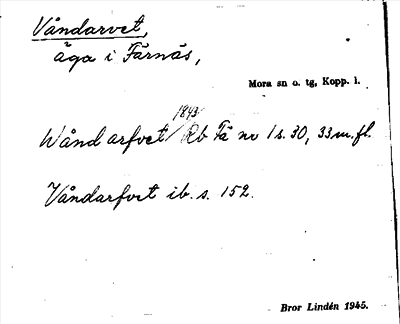 Våndarvet,
äga i Färnäs,
Mora sn o. tg, Kopp. l.
1843
Wåndarfvet Rb Fä nr 1 s. 30, 33 m. fl.
Våndarfvet ib. s. 152.
Bror Lindén 1945.